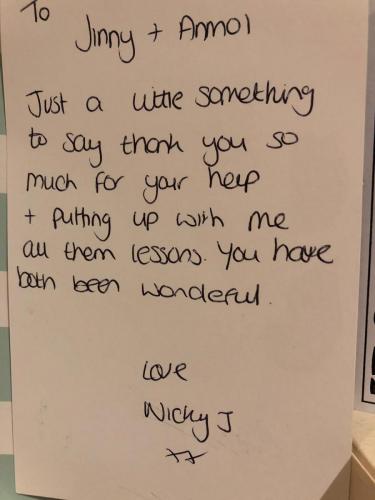 To
Jinny + Anmol
Just a little something
to say thank you so
much for your help
+ putting up with me
all them lessons. You have
both been wonderful.
Love
Nicky J
xx